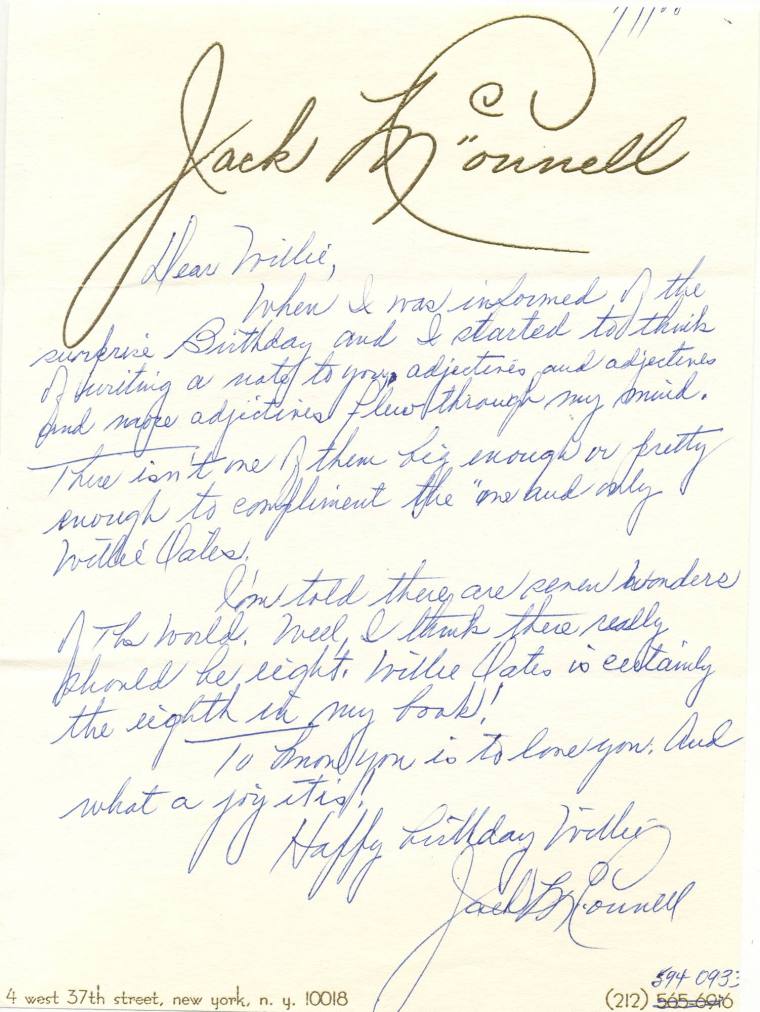 Jack McConnell
Dear Willie,
When I was informed of the
surprise Birthday and I started to think
of writing a note to you, adjectives and adjectives
and more adjectives flew through my mind.
There isn't one of them big enough or pretty
enough to compliment the "one and only
Willie Oates.
I'm told there are seven wonders
of The World. Well, I think there really
should be eight. Willie Oates is certainly
the eighth in my book!
To know you is to love you. And
what a joy it is!
Happy birthday Willie
Jack McConnell
594 093
4 west 37th street, new york, n. y. 10018 (212) 565-6916